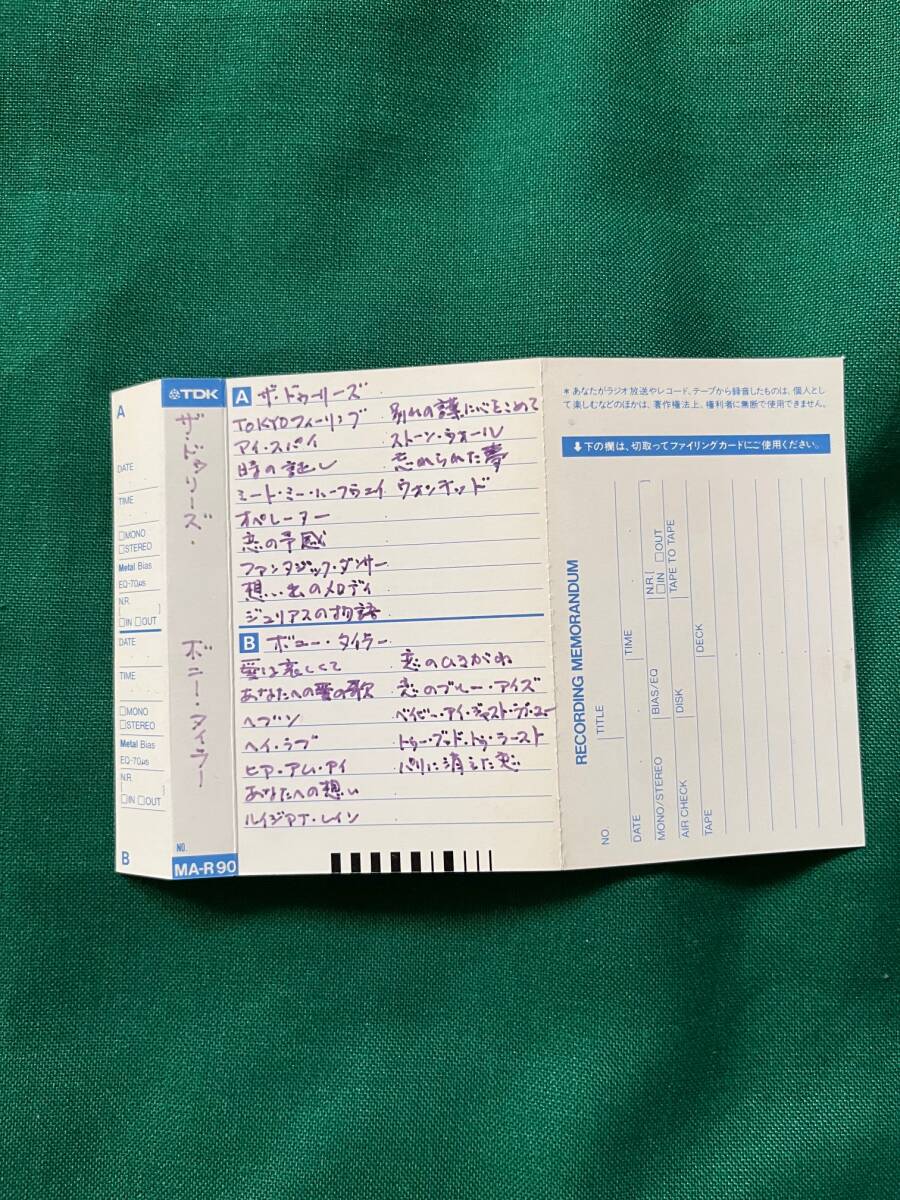 A
DATE
TIME
□MONO
□STEREO
Metal Bias
EQ-70μs
N.R.
[ ]
□IN □OUT
DATE
TIME
□MONO
□STEREO
Metal Bias
EQ-70μs
N.R.
[ ]
□IN □OUT
B
TDK
ザ・ドゥリーズ・
ボニー・タイラー
NO.
MA-R90
A ザ・ドゥーリーズ
TOKYOフィーリング
アイ・スパイ
時の証し
ミート・ミー・ハーフウェイ
オペレーター
恋の予感
ファンタジック・ダンサー
想い出のメロディ
ジュリアスの物語
別れの謀に心をこめて
ストーン・ウォール
忘れられた夢
ウォンテッド
B ボニー・タイラー
愛は哀しくて
あなたへの愛の歌
ヘブン
ヘイ・ラブ
ヒア・アム・アイ
あなたへの想い
ルイジアナ・レイン
恋のひるがね
恋のブルー・アイズ
ベイビー・アイ・ジャスト・ラブ・ユー
トゥー・グッド・トゥ・ラースト
パリに消えた恋
＊あなたがラジオ放送やレコード、テープから録音したものは、個人とし
て楽しむなどのほかは、著作権法上、権利者に無断で使用できません。
⬇下の欄は、切取ってファイリングカードにご使用ください。
RECORDING MEMORANDUM
NO.
TITLE
DATE
TIME
MONO/STEREO
BIAS/EQ
N.R.[
□IN □OUT
AIR CHECK
DISK
TAPE TO TAPE
TAPE
DECK